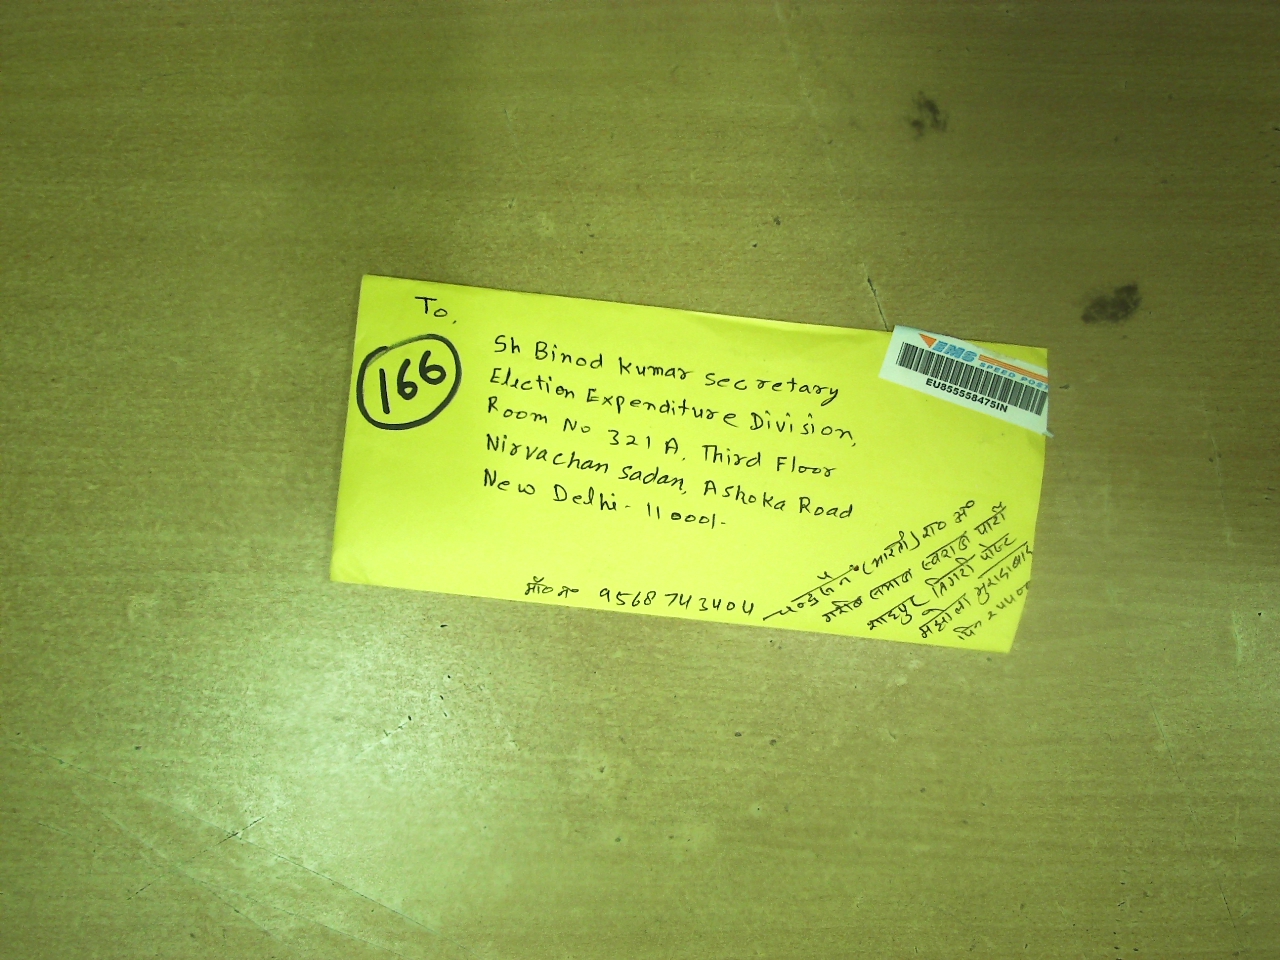 To,
166
Sh Binod Kumar secretary
Election Expenditure Division,
Room No 321 A, Third Floor
Nirvachan Sadan, Ashoka Road
New Delhi - 110001-
EMS
SPEED POST
EU855558475IN
मो० न० 9568743404
(भारती) रा० अ०
गरीब समाज स्वराज पार्टी
शाहपुर तिगरी पोस्ट
मझोला मुरादाबाद
पिन २४४०